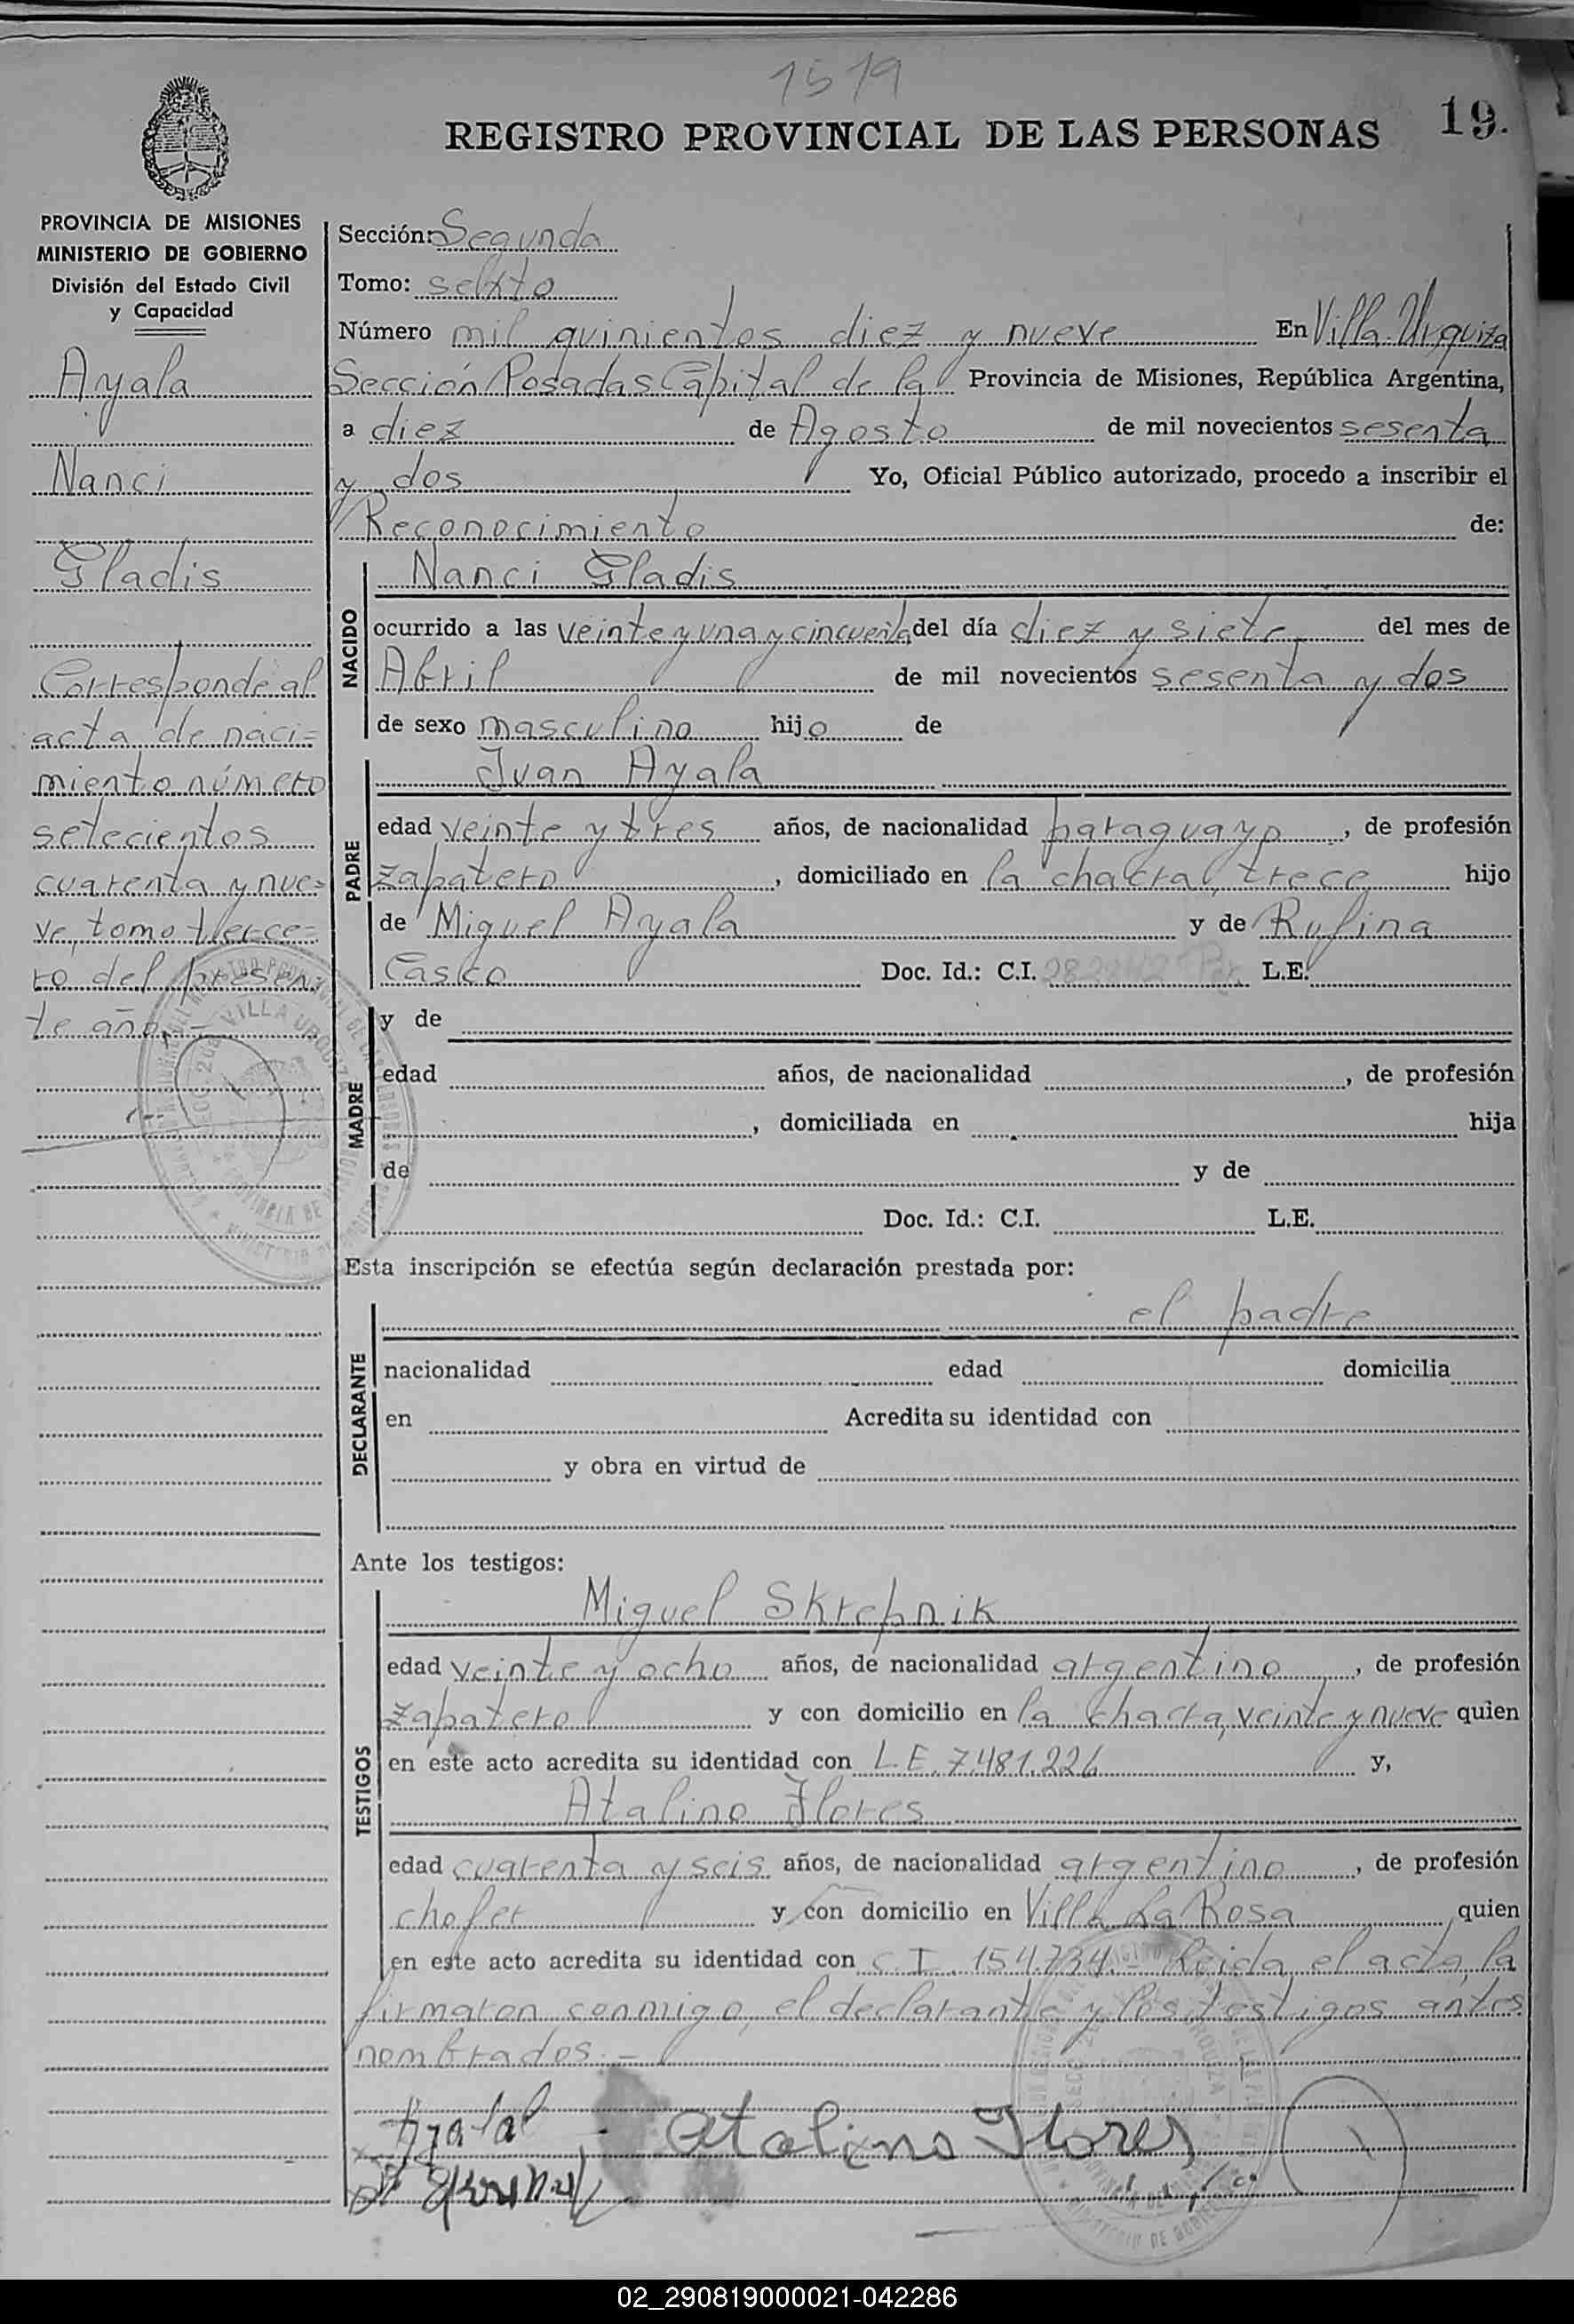 1519
REGISTRO PROVINCIAL DE LAS PERSONAS 19.
PROVINCIA DE MISIONES
MINISTERIO DE GOBIERNO
División del Estado Civil
y Capacidad
Ayala
Nanci
Gladis
Corresponde al
acta de naci=
miento número
setecientos
cuarenta y nue=
ve, tomo terce=
ro del presen
te año.-
Sección: Segunda
Tomo: sexto
Número mil quinientos diez y nueve En Villa Urquiza
Sección Posadas Capital de la Provincia de Misiones, República Argentina,
a diez de Agosto de mil novecientos sesenta
y dos Yo, Oficial Público autorizado, procedo a inscribir el
Reconocimiento de:
NACIDO
Nanci Gladis
ocurrido a las veinte y una y cincuenta del día diez y siete del mes de
Abril de mil novecientos sesenta y dos
de sexo masculino hijo de
PADRE
Juan Ayala
edad veinte y tres años, de nacionalidad paraguayo, de profesión
zapatero, domiciliado en la chacra, trece hijo
de Miguel Ayala y de Rufina
Casco Doc. Id.: C.I. L.E.
MADRE
y de
edad años, de nacionalidad , de profesión
, domiciliada en hija
de y de
Doc. Id.: C.I. L.E.
Esta inscripción se efectúa según declaración prestada por:
DECLARANTE
el padre
nacionalidad edad domicilia
en Acredita su identidad con
y obra en virtud de
Ante los testigos:
TESTIGOS
Miguel Skrepnik
edad veinte y ocho años, de nacionalidad argentino, de profesión
zapatero y con domicilio en la chacra, veinte y nueve quien
en este acto acredita su identidad con L.E. 7.481.226 y,
Atalino Flores
edad cuarenta y seis años, de nacionalidad argentino, de profesión
chofer y con domicilio en Villa La Rosa quien
en este acto acredita su identidad con C.I. 154.734.- Leida el acta, la
firmaron conmigo, el declarante y los testigos antes
nombrados.-
Ayala
Atalino Flores
02_290819000021-042286